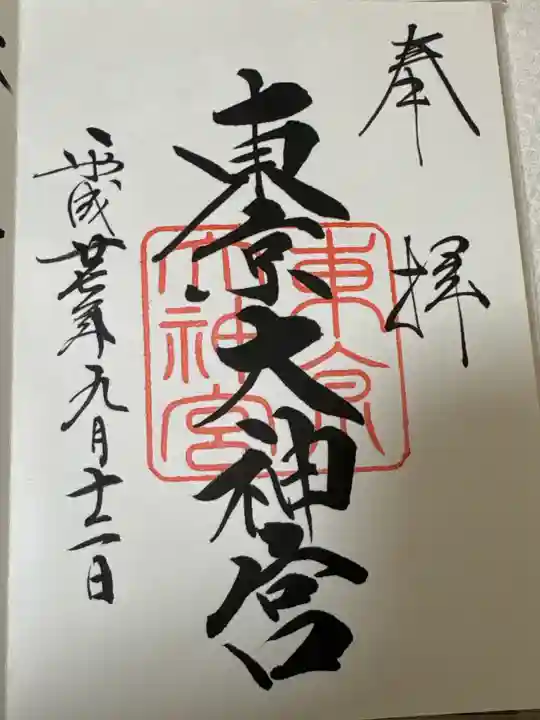 奉拝
東京大神宮
東京大神宮
平成廿七年九月十二日